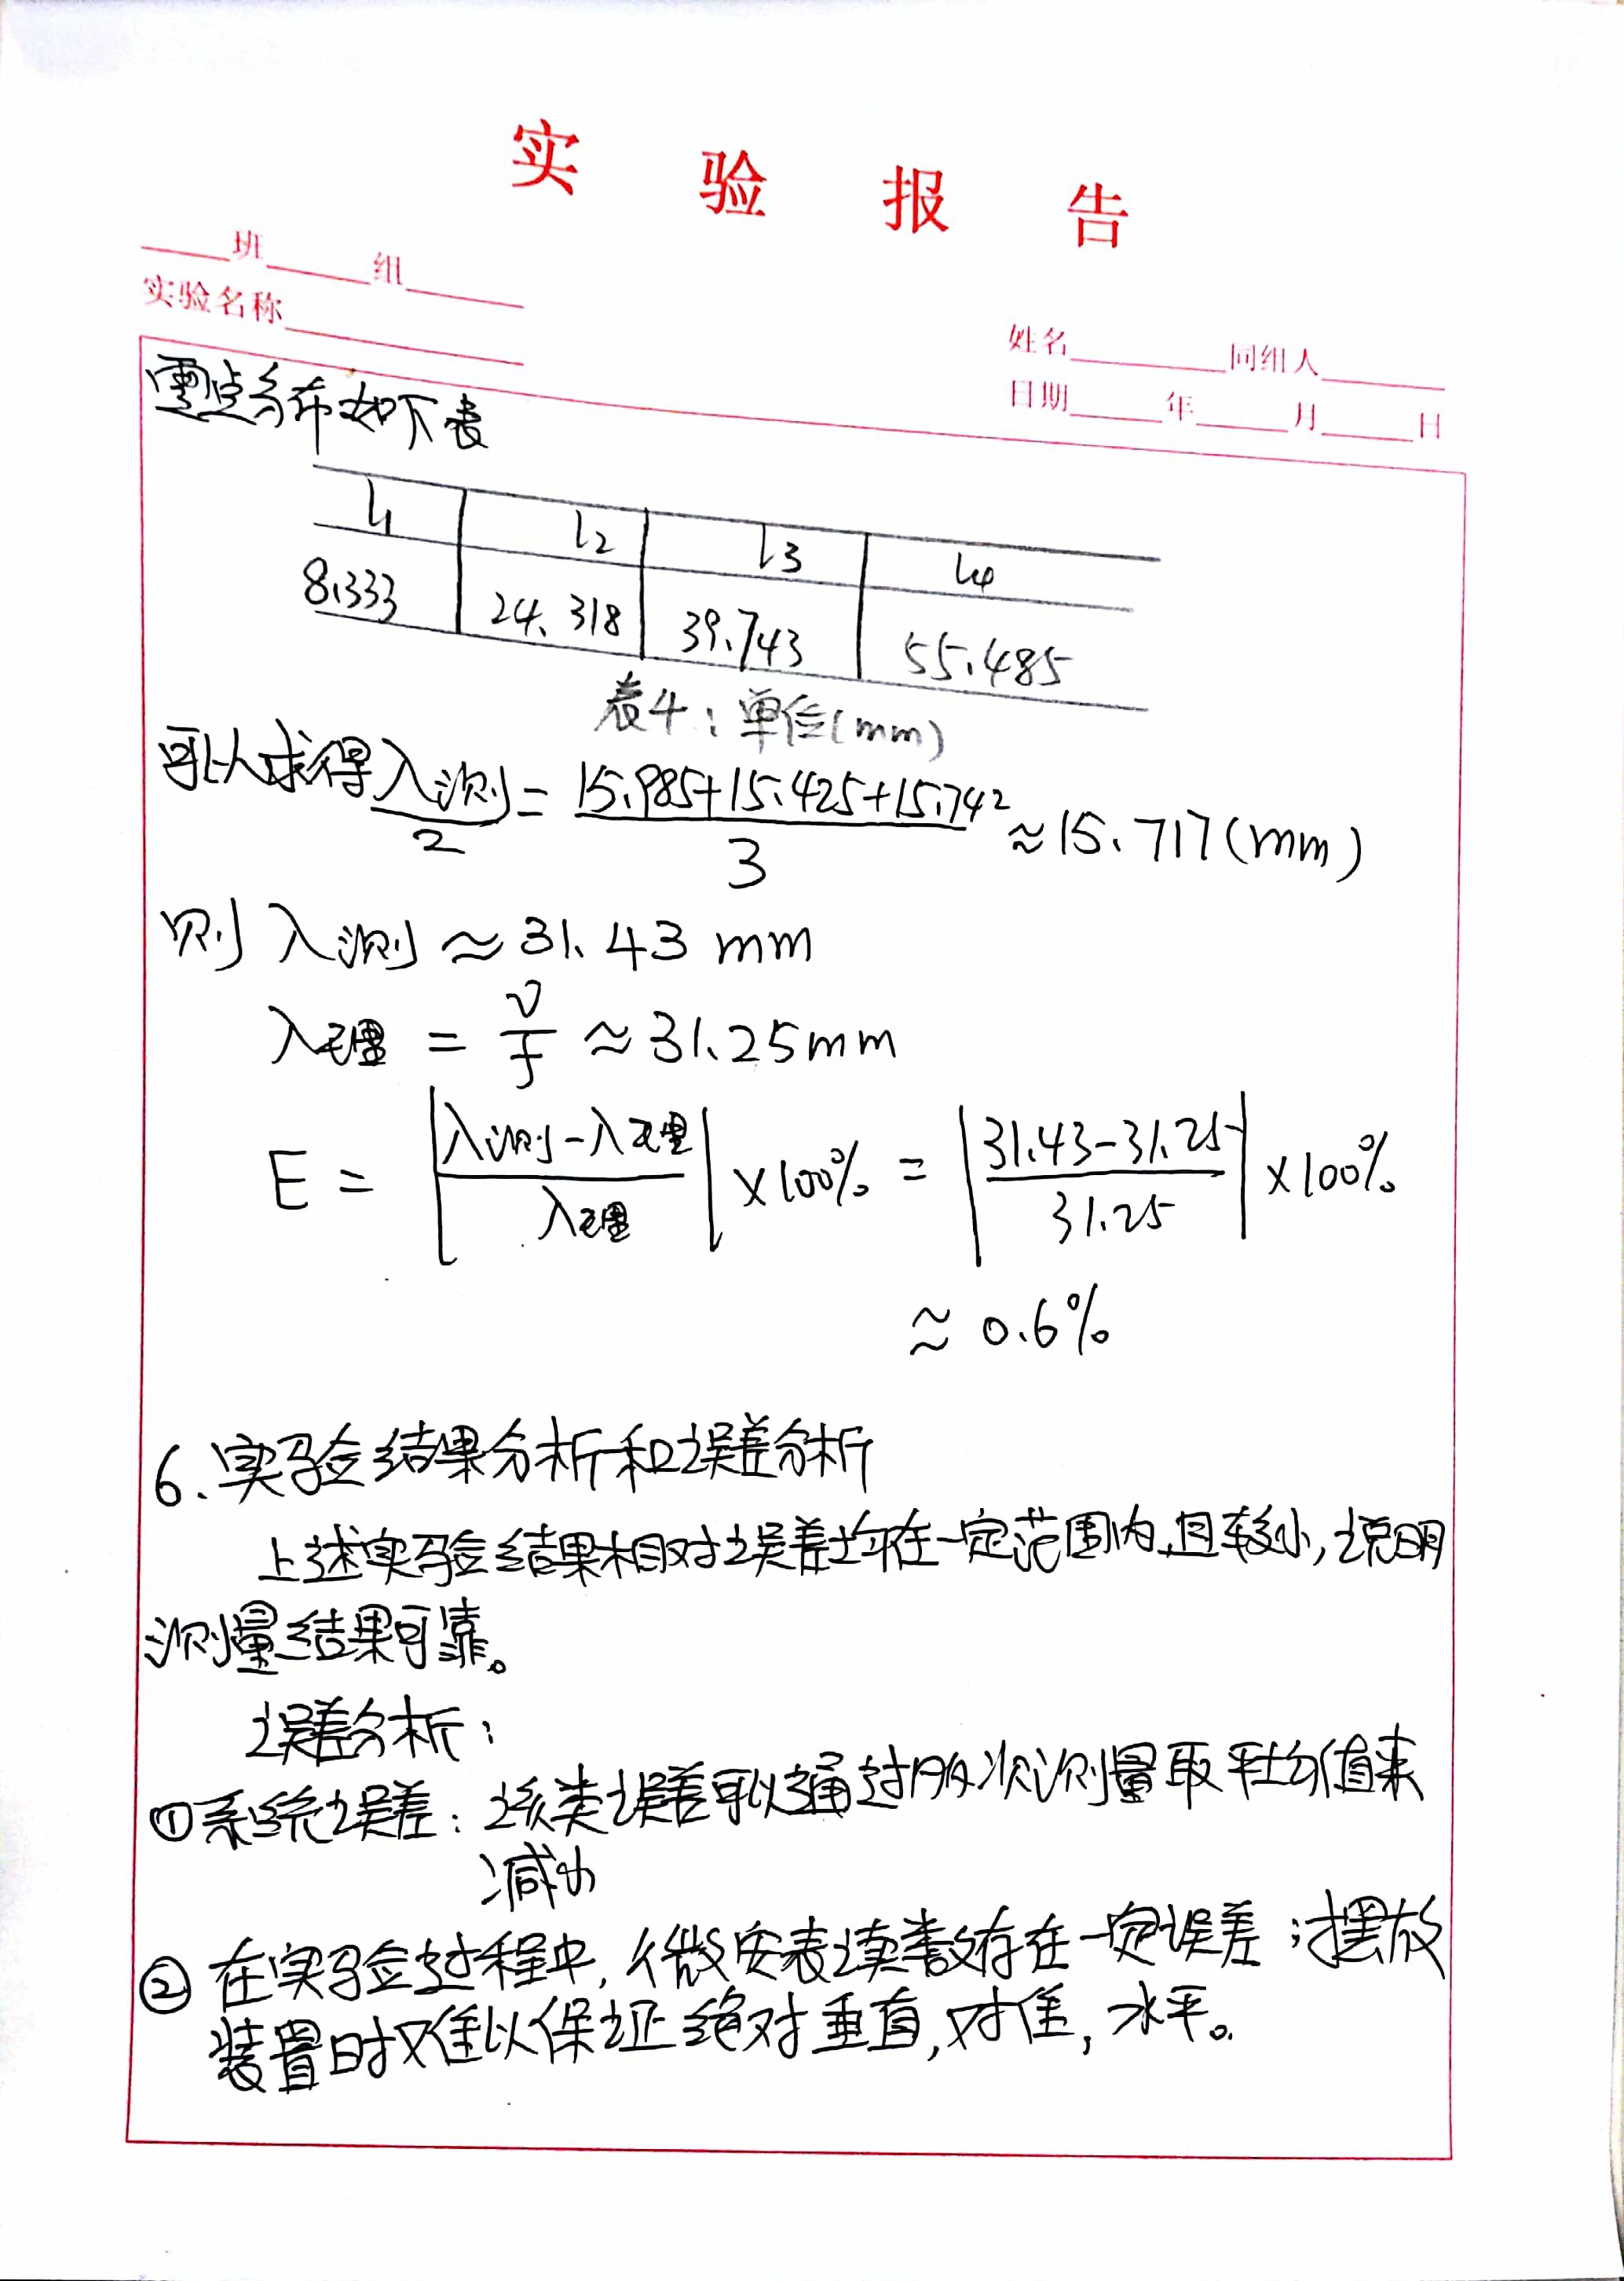 实验报告
___班___组___
实验名称___
姓名___同组人___
日期___年___月___日
零点分布如下表
l1 l2 l3 l4
8.333 24.318 39.743 55.485
表4：单位(mm)
可以求得 λ测/2 = (15.985+15.425+15.742)/3 ≈ 15.717(mm)
则 λ测 ≈ 31.43 mm
λ理 = v/f ≈ 31.25mm
E = |(λ测-λ理)/λ理| ×100% = |(31.43-31.25)/31.25| ×100%
≈ 0.6%
6. 实验结果分析和误差分析
上述实验结果相对误差均在一定范围内,且较小,说明
测量结果可靠。
误差分析：
①系统误差：该类误差可以通过多次测量取平均值来
减小
② 在实验过程中,微安表读数存在一定误差；摆放
装置时难以保证绝对垂直,对准,水平。